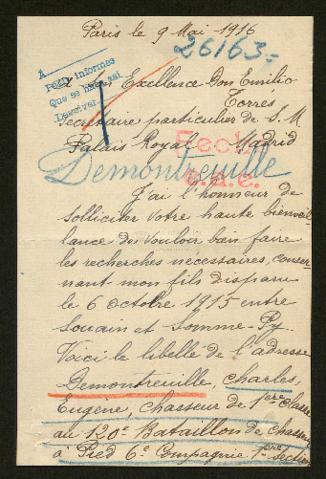 Paris le 9 Mai 1916
26163=
A
Pedir informes
Que se halla así
Descriver
A Son Excellence Don Emilio
Torrés
Secrétaire particulier de S. M
Palais Royal Madrid
Fecha
Demontreuille
J'ai l'honneur de
solliciter votre haute bienveil
lance de vouloir bien faire
les recherches nécessaires, concer
nant mon fils disparu
le 6 octobre 1915 entre
Souain et Somme-Py.
Voici le libellé de l'adresse
Demontreuille, Charles,
Eugène, chasseur de 1ère classe
au 120e Bataillon de chasseurs
à Pied 6e Compagnie 1ère section